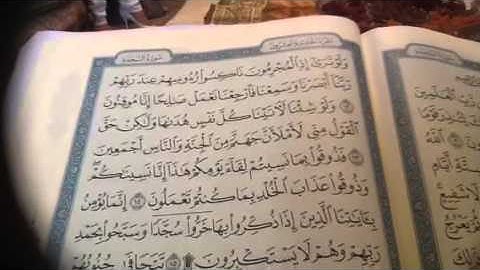 سُورَةُ السَّجْدَةِ
وَلَوْ تَرَىٰٓ إِذِ ٱلْمُجْرِمُونَ نَاكِسُوا۟ رُءُوسِهِمْ عِندَ رَبِّهِمْ
رَبَّنَآ أَبْصَرْنَا وَسَمِعْنَا فَٱرْجِعْنَا نَعْمَلْ صَٰلِحًا إِنَّا مُوقِنُونَ
١٢ وَلَوْ شِئْنَا لَءَاتَيْنَا كُلَّ نَفْسٍ هُدَىٰهَا وَلَٰكِنْ حَقَّ
ٱلْقَوْلُ مِنِّى لَأَمْلَأَنَّ جَهَنَّمَ مِنَ ٱلْجِنَّةِ وَٱلنَّاسِ أَجْمَعِينَ
١٣ فَذُوقُوا۟ بِمَا نَسِيتُمْ لِقَآءَ يَوْمِكُمْ هَٰذَآ إِنَّا نَسِينَٰكُمْ
وَذُوقُوا۟ عَذَابَ ٱلْخُلْدِ بِمَا كُنتُمْ تَعْمَلُونَ ١٤ إِنَّمَا يُؤْمِنُ
بِـَٔايَٰتِنَا ٱلَّذِينَ إِذَا ذُكِّرُوا۟ بِهَا خَرُّوا۟ سُجَّدًا وَسَبَّحُوا۟ بِحَمْدِ
رَبِّهِمْ وَهُمْ لَا يَسْتَكْبِرُونَ ۩ ١٥ تَتَجَافَىٰ جُنُوبُهُمْ